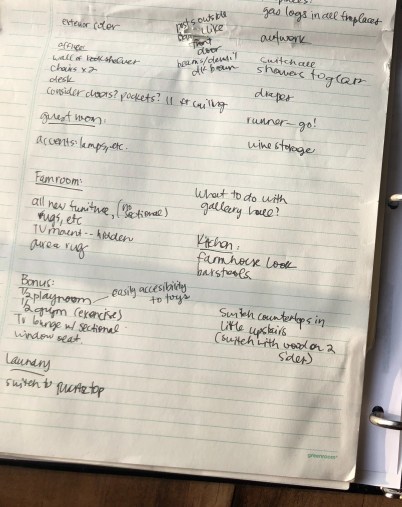 exterior color
posts outside
Like
front
door
beams/
dk brown
office:
wall of bookshelves
chairs x2
desk
consider doors? pockets?
guest room:
accents: lamps, etc.
Famroom:
all new furniture, (no sectional)
rugs, etc
TV mount -- hidden
area rug
Bonus:
1/2 playroom - easily accesibility to toys
1/2 gym (exercise)
TV lounge w/ sectional
window seat
Laundry
switch to
gas logs in all fireplaces
artwork
switch all
showers to glass
drapes
runner - go!
wine storage
What to do with
gallery wall?
Kitchen:
farmhouse look
barstools
Switch countertops in
little upstairs
(switch with wood on 2
sides)